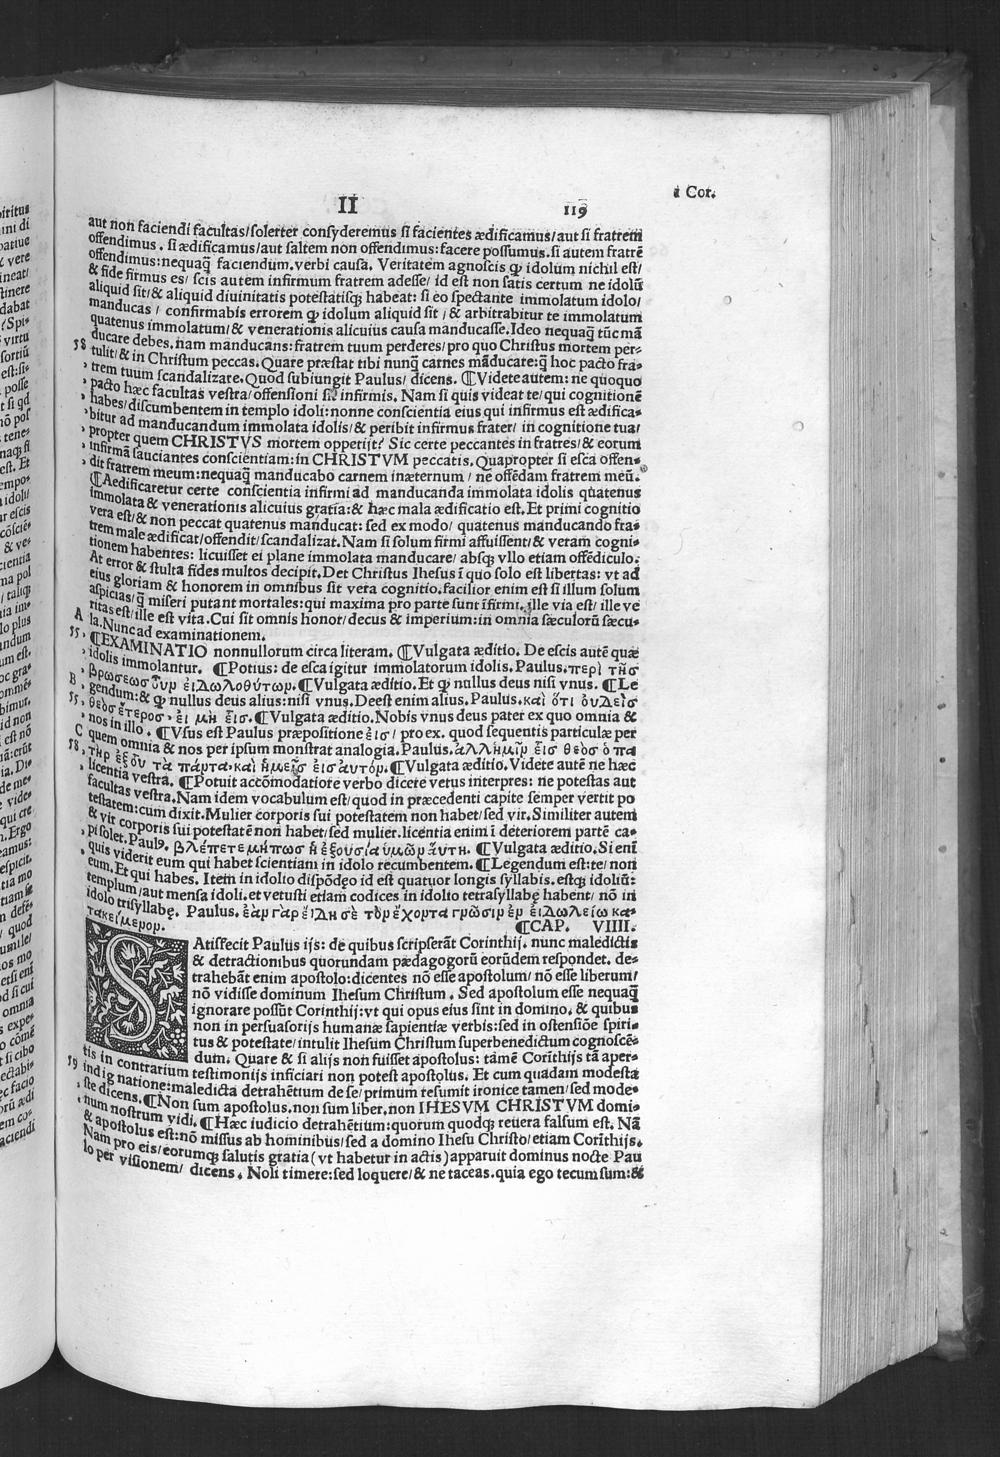 II 119 i Cor.
aut non faciendi facultas/solerter consyderemus si facientes ædificamus/aut si fratrem
offendimus. si ædificamus/aut saltem non offendimus: facere possumus. si autem fratrē
offendimus: nequaq̄ faciendum. verbi causa. Veritatem agnoscis ꝙ idolum nichil est/
& fide firmus es/ scis autem infirmum fratrem adesse/ id est non satis certum ne idolū
aliquid sit/& aliquid diuinitatis potestatisqꝫ habeat: si eo spectante immolatum idolo/
manducas/ confirmabis errorem ꝙ idolum aliquid sit/& arbitrabitur te immolatum
quatenus immolatum/& venerationis alicuius causa manducasse. Ideo nequaq̄ tūc mā
ducare debes. nam manducans: fratrem tuum perderes/pro quo Christus mortem per-
58 tulit/& in Christum peccas. Quare præstat tibi nunq̄ carnes māducare: q̄ hoc pacto fra-
trem tuum scandalizare. Quod subiungit Paulus/ dicens. ¶Videte autem: ne quoquo
pacto hæc facultas vestra/offensioni sit infirmis. Nam si quis videat te/qui cognitionē
habes/discumbentem in templo idoli: nonne conscientia eius qui infirmus est ædifica-
bitur ad manducandum immolata idolis/& peribit infirmus frater/ in cognitione tua/
propter quem CHRISTVS mortem oppetijt? Sic certe peccantes in fratres/& eorum
infirmā sauciantes conscientiam: in CHRISTVM peccatis. Quapropter si esca offen-
dit fratrem meum: nequaq̄ manducabo carnem inæternum/ ne offēdam fratrem meū.
¶Aedificaretur certe conscientia infirmi ad manducanda immolata idolis quatenus
immolata & venerationis alicuius gratia: & hæc mala ædificatio est. Et primi cognitio
vera est/& non peccat quatenus manducat: sed ex modo/ quatenus manducando fra-
trem male ædificat/offendit/scandalizat. Nam si solum firmi affuissent/& veram cogni-
tionem habentes: licuisset ei plane immolata manducare/ absqꝫ vllo etiam offēdiculo.
At error & stulta fides multos decipit. Det Christus Ihesus ī quo solo est libertas: vt ad
eius gloriam & honorem in omnibus sit vera cognitio. facilior enim est si illum solum
aspicias/q̄ miseri putant mortales: qui maxima pro parte sunt īfirmi. ille via est/ ille ve
ritas est/ille est vita. Cui sit omnis honor/decus & imperium: in omnia sæculorū sæcu-
A la. Nunc ad examinationem.
55 ¶EXAMINATIO nonnullorum circa literam. ¶Vulgata æditio. De escis autē quæ
idolis immolantur. ¶Potius: de esca igitur immolatorum idolis. Paulus. περὶ τῆσ
βρώσεωσ οὖν εἰδωλοθύτων. ¶Vulgata æditio. Et ꝙ nullus deus nisi vnus. ¶Le
B gendum: & ꝙ nullus deus alius: nisi vnus. Deest enim alius. Paulus. καὶ ὅτι οὐδεὶσ
55 θεὸσ ἕτεροσ. εἰ μὴ εἷσ. ¶Vulgata æditio. Nobis vnus deus pater ex quo omnia &
nos in illo. ¶Vsus est Paulus præpositione εἰσ/ pro ex. quod sequentis particulæ per
C quem omnia & nos per ipsum monstrat analogia. Paulus. ἀλλἡμῖν εἷσ θεὸσ ὁ πα
58 τὴρ ἐξοὗ τὰ πάντα. καὶ ἡμεῖσ εἰσαὐτόν. ¶Vulgata æditio. Videte autē ne hæc
licentia vestra. ¶Potuit accōmodatiore verbo dicere vetus interpres: ne potestas aut
facultas vestra. Nam idem vocabulum est/quod in præcedenti capite semper vertit po
testatem: cum dixit. Mulier corporis sui potestatem non habet/sed vir. Similiter autem
& vir corporis sui potestatē non habet/sed mulier. licentia enim ī deteriorem partē ca-
pi solet. Paulꝰ. βλέπετε μήπωσ ἡ ἐξουσία ὑμῶν αὕτη. ¶Vulgata æditio. Si enī
quis viderit eum qui habet scientiam in idolo recumbentem. ¶Legendum est: te/ non
eum. Et qui habes. Item in idolio dispōdeo id est quatuor longis syllabis. estqꝫ idoliū:
templum/aut mensa idoli. et vetusti etiam codices in idolio tetrasyllabę habent/ nō in
idolo trisyllabę. Paulus. ἐὰν γὰρ εἴδη σὲ τὸν ἔχοντα γνῶσιν ἐν εἰδωλείω κα-
τακείμενον. ¶CAP. VIIII.
SAtisfecit Paulus ijs: de quibus scripserāt Corinthij. nunc maledictis
& detractionibus quorundam pædagogorū eorūdem respondet. de-
trahebāt enim apostolo: dicentes nō esse apostolum/ nō esse liberum/
nō vidisse dominum Ihesum Christum. Sed apostolum esse nequaq̄
ignorare possūt Corinthij: vt qui opus eius sint in domino. & quibus
non in persuasorijs humanæ sapientiæ verbis: sed in ostensiōe spiri-
tus & potestate/intulit Ihesum Christum superbenedictum cognoscē-
dum. Quare & si alijs non fuisset apostolus: tamē Corīthijs tā aper-
tis in contrarium testimonijs inficiari non potest apostolus. Et cum quadam modesta
59 indignatione: maledicta detrahētium de se/primum resumit ironice tamen/sed mode-
ste dicens. ¶Non sum apostolus. non sum liber. non IHESVM CHRISTVM domi-
num nostrum vidi. ¶Hæc iudicio detrahētium: quorum quodqꝫ reuera falsum est. Nā
& apostolus est: nō missus ab hominibus/sed a domino Ihesu Christo/etiam Corīthijs.
Nam pro eis/eorumqꝫ salutis gratia (vt habetur in actis) apparuit dominus nocte Pau
lo per visionem/ dicens. Noli timere: sed loquere/& ne taceas. quia ego tecum sum: &